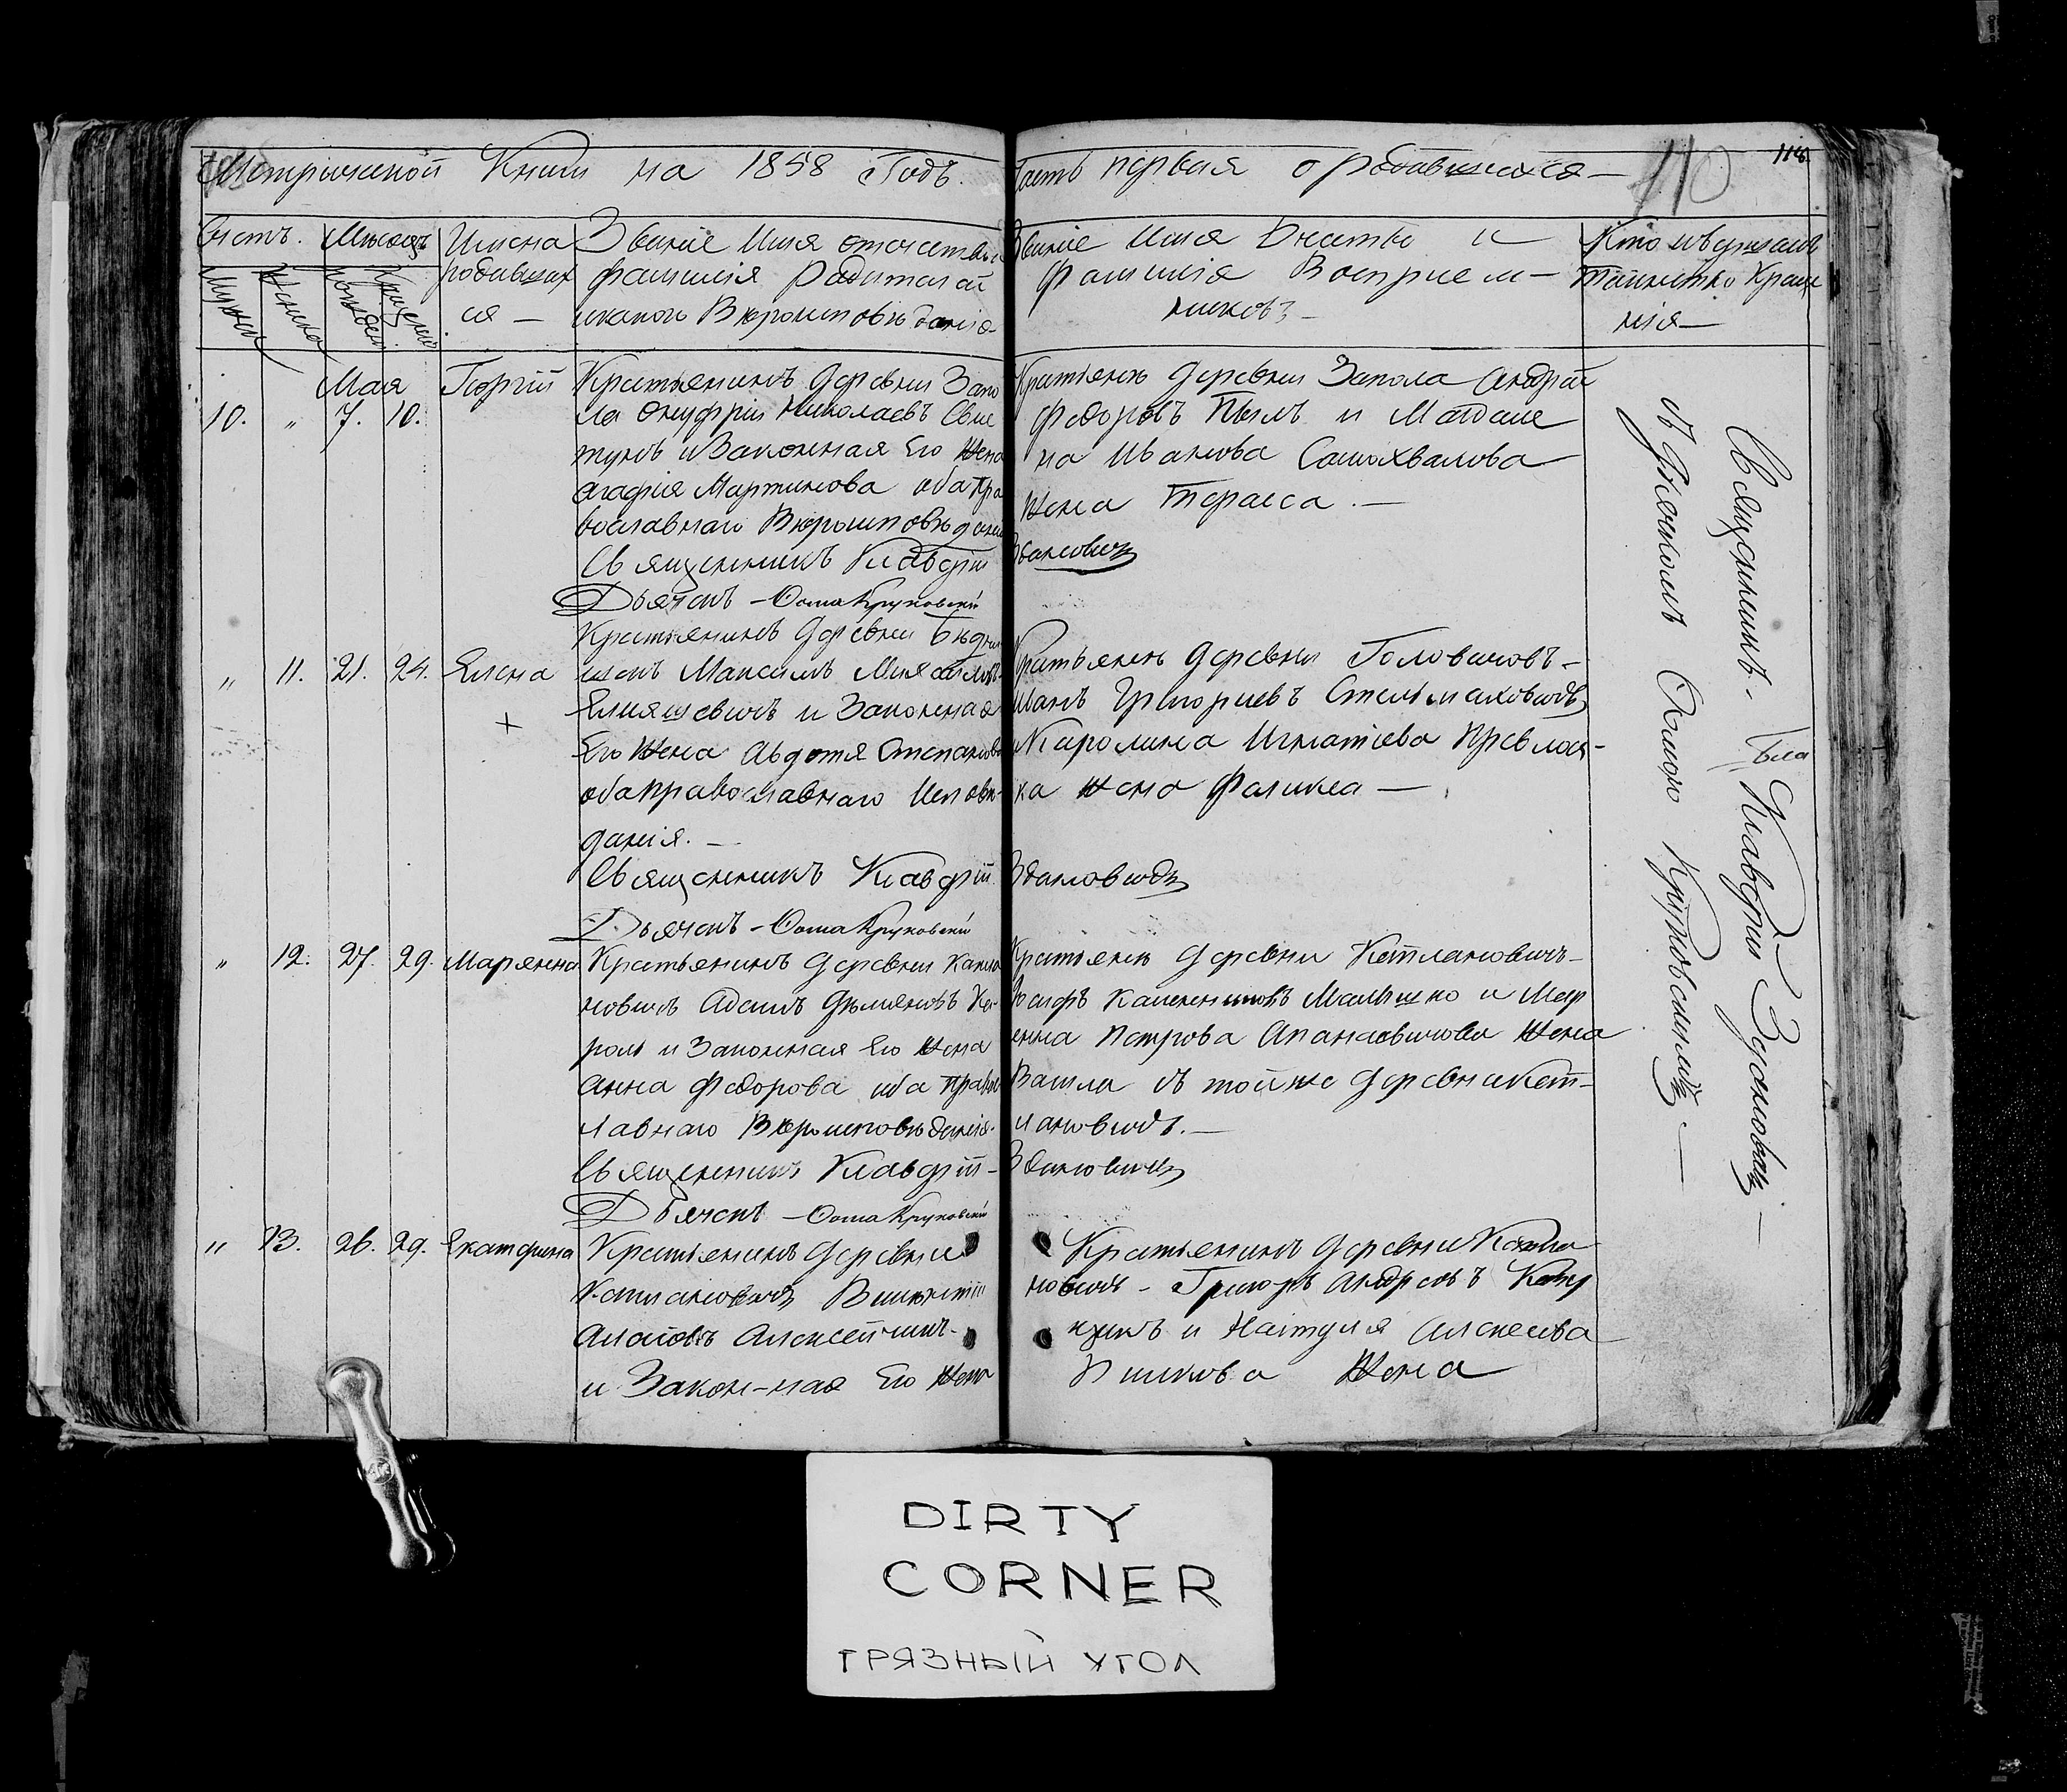 Метрической Книги на 1858 Годъ. Часть первая о родившихся —
110
118
Счетъ. Мѣсяцъ Имена Званіе Имя отчество и
родивших фамилія Родителей
ся — какого Вѣроисповѣданія
Званіе Имя Очество и
Фамилія Воспріем-
никовъ —
Кто совершалъ
Таинство Креще
нія —
Мая Георгій
10. „ 7. 10.
Крестьянинъ деревни Запо
ла Онуфрій Николаевъ
и Законная Его Жена
Агафія Мартинова оба Пра
вославнаго Вѣроисповѣданія
Священникъ Клавдій
Дьячекъ – Ѳома Круковскій
Крестьянъ деревни Запола Андрей
Федоровъ и Магдале
на Иванова Самохвалова
Жена Тараса. —
Здановичъ
„ 11. 21. 24. Елена
+
Крестьянинъ деревни
Максимъ
Еліяшевичъ и Законная
Его Жена Авдотя Степанова
оба православнаго Исповѣ-
данія. —
Священникъ Клавдій
Дьячекъ – Ѳома Круковскій
Крестьянъ деревни Головичовъ –
Иванъ Григорьевъ Стельмаховичъ
и Каролина Игнатіева
ка жена Феликса —
Здановичъ
„ 12. 27. 29. Марянна
Крестьянинъ деревни Катла
новичъ Адамъ Дѣмяновъ Ко-
роль и Законная Его Жена
Анна Федорова оба право
лавнаго Вѣроисповѣданія.
Священникъ Клавдій –
Дьячекъ – Ѳома Круковскій
Крестьянъ деревни Котлановичъ –
Іосифъ Малышко и Мар
енна Петрова Апанасовичова Жена
съ тойже деревни Кот-
лановичъ. —
Здановичъ
„ 13. 26. 29. Екатерина
Крестьянинъ деревни
Катлановичъ Викентій
Алексейчикъ
и Закон-ная Его Жена
Крестьянинъ деревни Катла
новичъ – Григоръ Андреевъ
и Настуля Алексеева
Жена
Священникъ. Клавдій Здановичъ —
съ Дьячкомъ Ѳомою Круковскимъ. —
DIRTY
CORNER
ГРЯЗНЫЙ УГОЛ